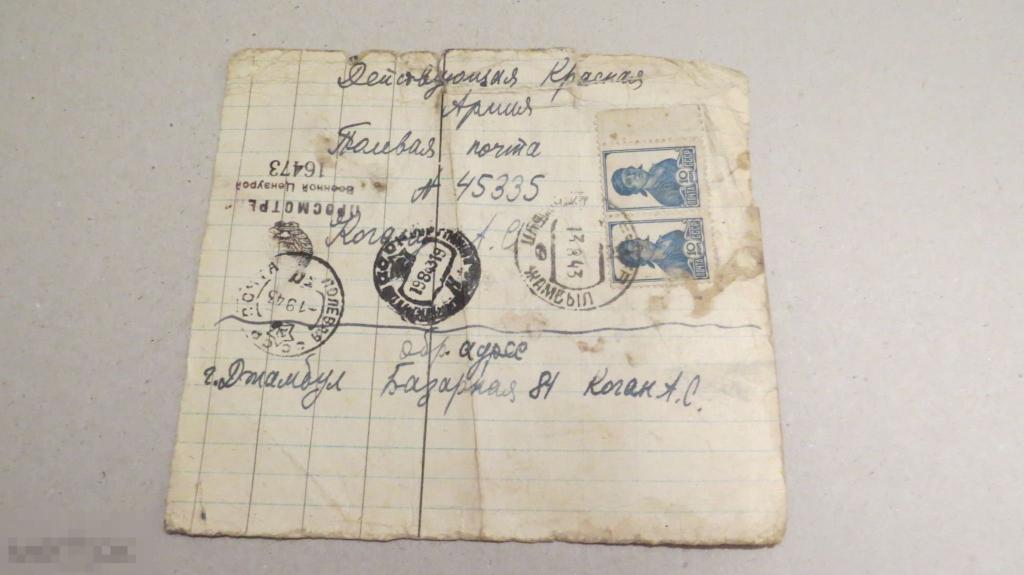 Действующая Красная
Армия
Полевая почта
№ 45335
Коган А. С.
ПРОСМОТРЕ
Военной Цензурой
16473
ПОЛЕВАЯ ПОЧТА
-1 9 43
СССР
19 8 43 19
13 8 43
ЖАМБЫЛ
ПОЧТА 10 СССР
ПОЧТА 10 СССР
обр. адрес
г. Джамбул Базарная 81 Коган А. С.